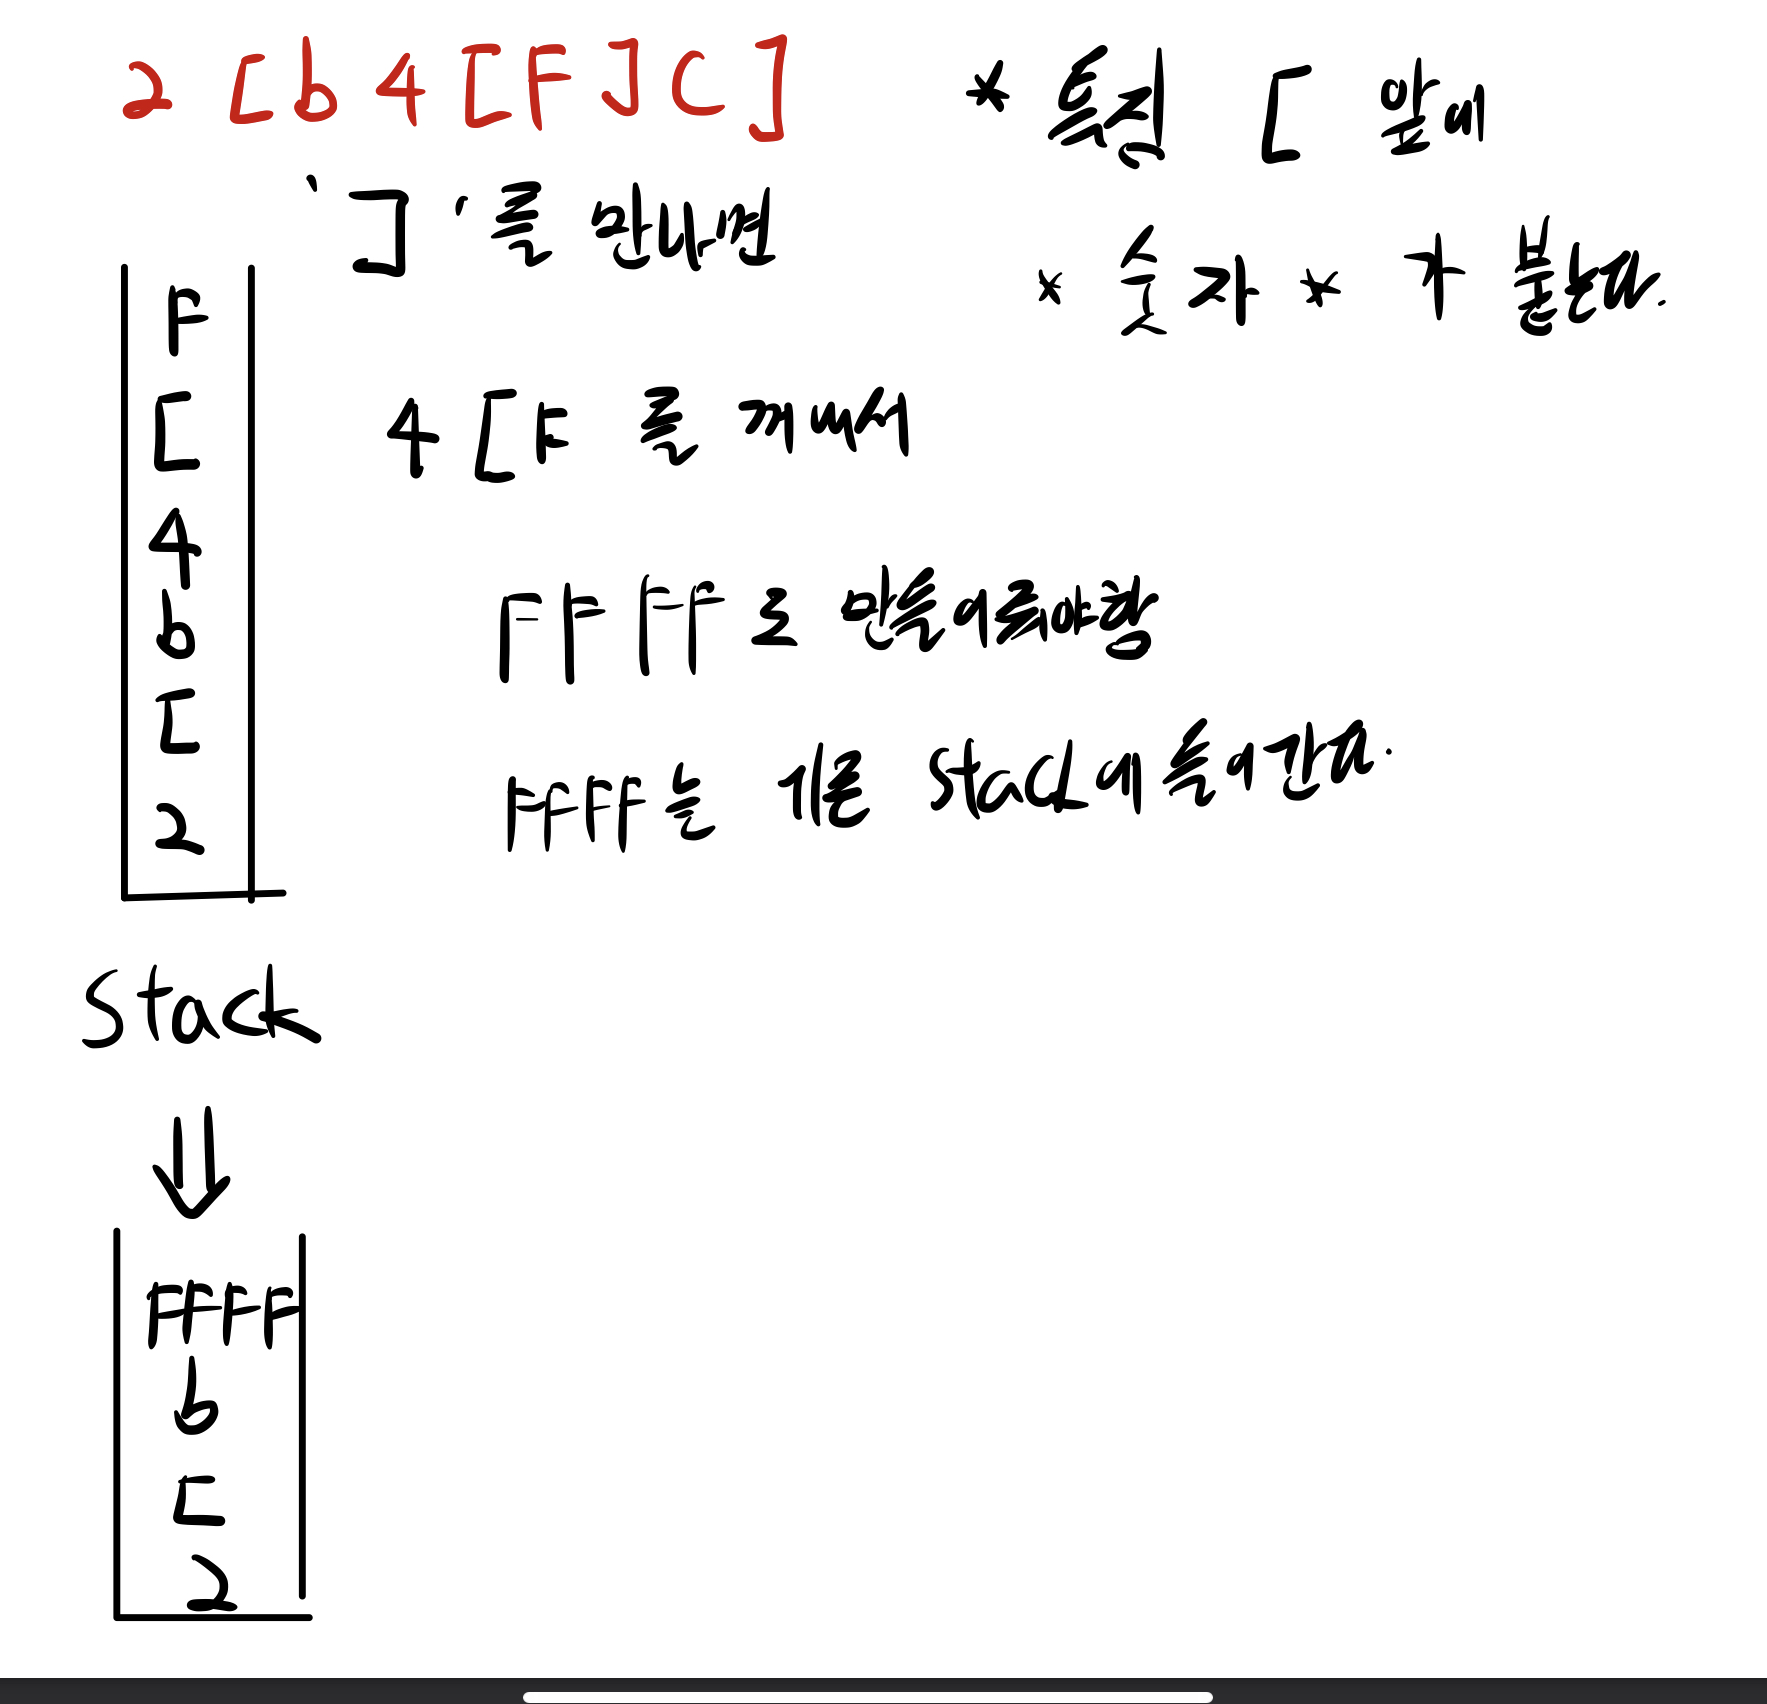 2 [ b 4 [ F ] C ]
* 특징 [ 앞에
* 숫자 * 가 붙는다.
' ] ' 를 만나면
F
[
4
b
[
2
4 [ F 를 꺼내서
FFFF로 만들어줘야함
FFFF는 기존 Stack에 들어간다.
Stack
FFFF
b
[
2